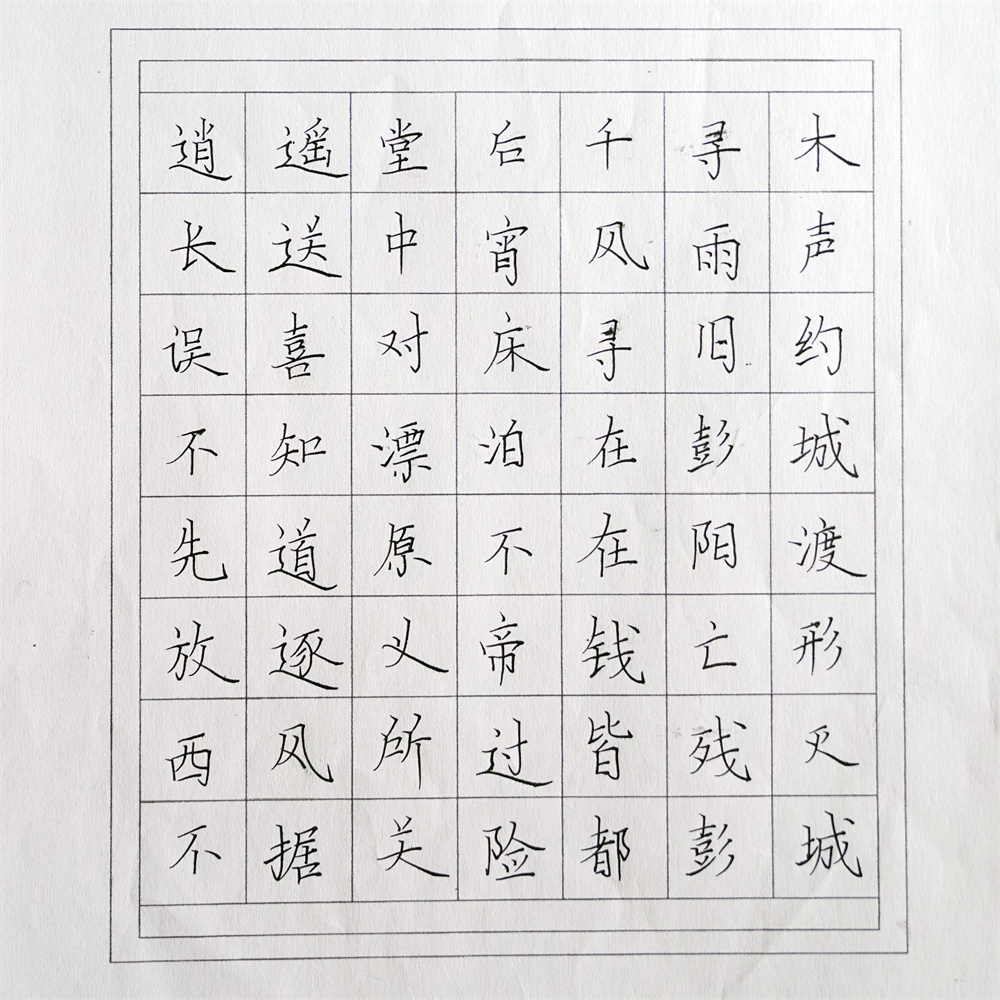 逍遥堂后千寻木
长送中宵风雨声
误喜对床寻旧约
不知漂泊在彭城
先道原不在阳渡
放逐义帝钱亡形
西风所过皆残灭
不据关险都彭城